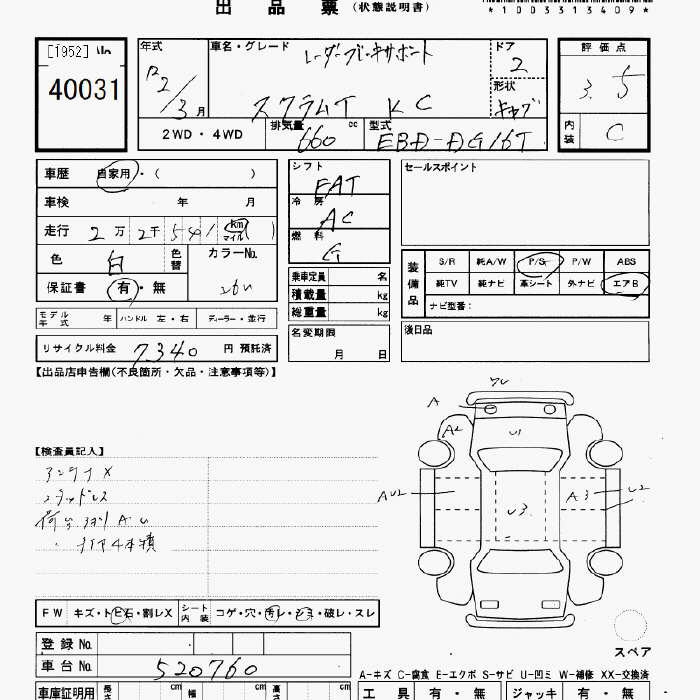 出品票 (状態説明書)
*1003313409*
[1952]
40031
年式 12 2/3 月
車名・グレード レーダーブレーキサポート
スクラムT KC
ドア 2
形状
2WD・4WD
排気量 660 cc
型式 EBD-DG16T
評価点 3.5
内装 C
車歴 自家用・( )
車検 年 月
走行 2万 2千 541 (km マイル)
色 白 色替
カラーNo. 26U
保証書 有・無
モデル年式 年 ハンドル 左・右 ディーラー・並行
リサイクル料金 7,340 円 預託済
シフト FAT
冷房 AC
燃料 G
乗車定員 名
積載量 kg
総重量 kg
名変期限 月 日
セールスポイント
装備品
S/R 純A/W P/S P/W ABS
純TV 純ナビ 革シート 外ナビ エアB
ナビ型番:
後日品
【出品店申告欄(不良箇所・欠品・注意事項等)】
【検査員記入】
アンテナX
スタッドレス
荷台 AU
タイヤ4本積
A
A2
U1
AU2
U3
A3
U2
スペア
FW キズ・トビ石・割レX シート内装 コゲ・穴・汚レ・シミ・破レ・スレ
登録No.
車台No. 520760
A-キズ C-腐食 E-エクボ S-サビ U-凹ミ W-補修 XX-交換済
車庫証明用 長さ cm 幅 cm 高さ cm
工具 有・無 ジャッキ 有・無